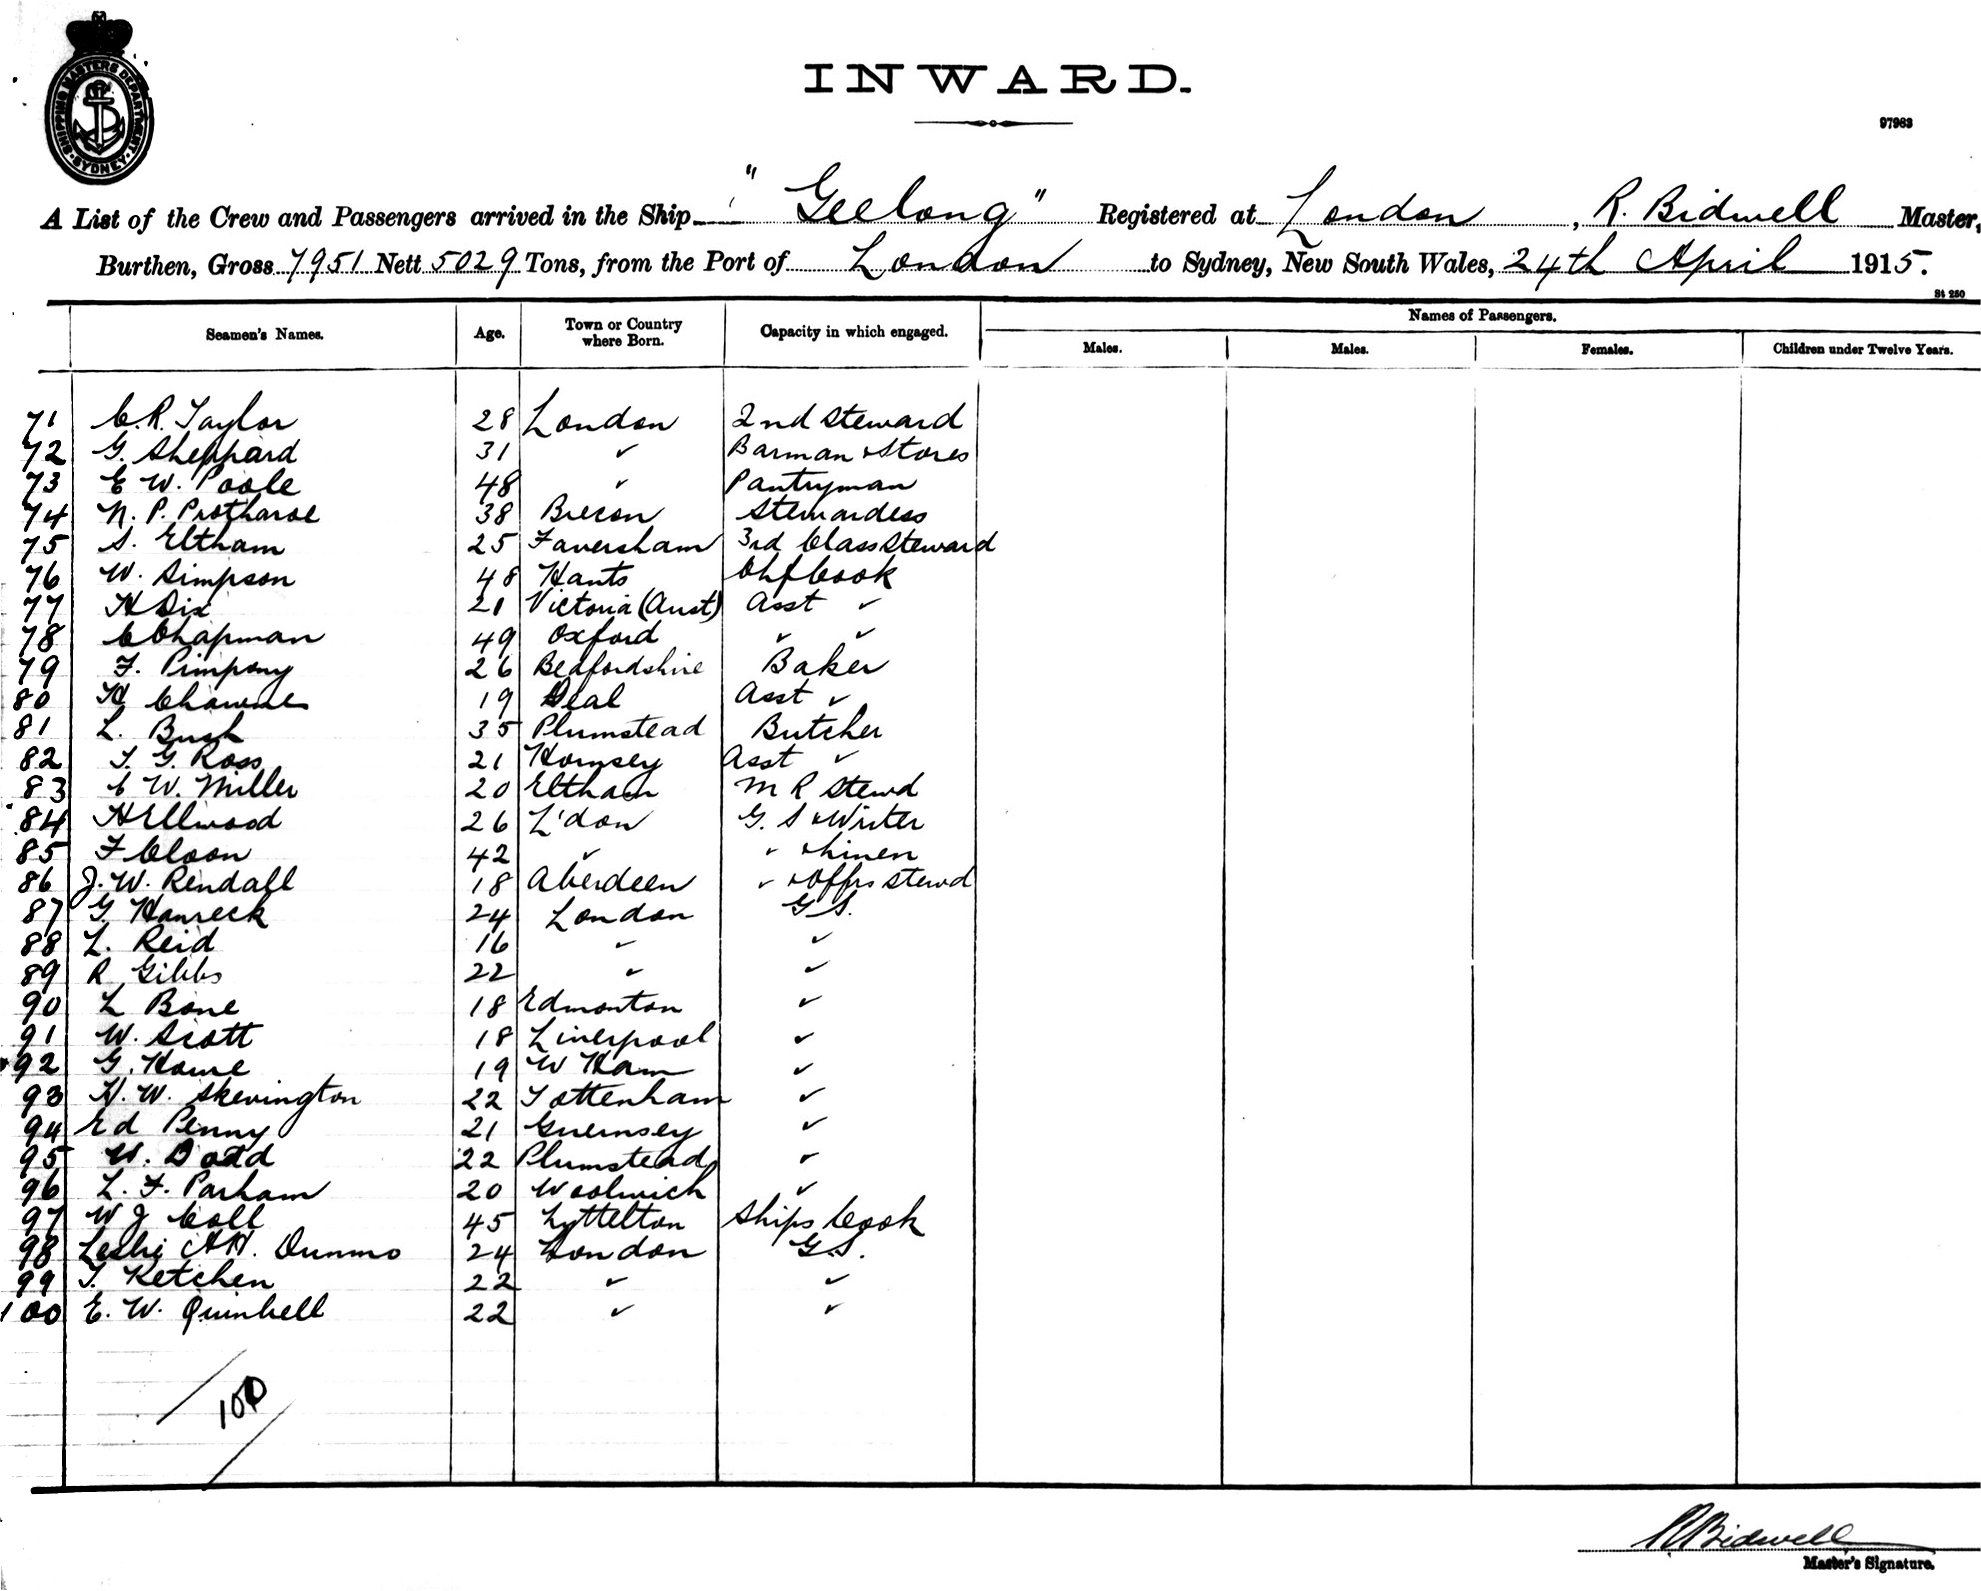 SHIPPING MASTERS DEPARTMENT
SYDNEY
INWARD.
97963
A List of the Crew and Passengers arrived in the Ship "Geelong" Registered at London, R. Bidwell Master,
Burthen, Gross 7951 Nett 5029 Tons, from the Port of London to Sydney, New South Wales, 24th April 1915.
St 250
Seamen's Names. Age. Town or Country where Born. Capacity in which engaged. Names of Passengers.
Males. Males. Females. Children under Twelve Years.
71 C. R. Taylor 28 London 2nd Steward
72 G. Sheppard 31 " Barman & Stores
73 E W. Poole 48 " Pantryman
74 N. P. Protharoe 38 Brecon Stewardess
75 S. Eltham 25 Faversham 3rd Class Steward
76 W. Simpson 48 Hants Chf Cook
77 H Dix 21 Victoria (Aust) Asst "
78 C Chapman 49 Oxford " "
79 F. 26 Bedfordshire Baker
80 H 19 Deal Asst "
81 L. Bush 35 Plumstead Butcher
82 T. G. Ross 21 Hornsey Asst "
83 C W. Miller 20 Eltham M R Stewd
84 H Ellwood 26 L'don G. S & Writer
85 F Cloon 42 " " & Linen
86 J. W. Rendall 18 Aberdeen " & Offrs Stewd
87 G. Hanreck 24 London G S.
88 L. Reid 16 " "
89 R Gibbs 22 " "
90 L Bone 18 Edmonton "
91 W. Scott 18 Liverpool "
92 G. Howe 19 W Ham "
93 H. W. Skevington 22 Tottenham "
94 Ed Penny 21 Guernsey "
95 W. Dodd 22 Plumstead "
96 L. F. Parham 20 Woolwich "
97 W J Coll 45 Lyttelton Ships Cook
98 Leslie A H. Dunmo 24 London G. S.
99 T. Ketchen 22 " "
100 E. W. Quinnell 22 " "
100
R Bidwell
Master's Signature.